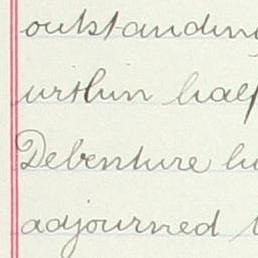 outstanding
within half
Debenture h
adjourned